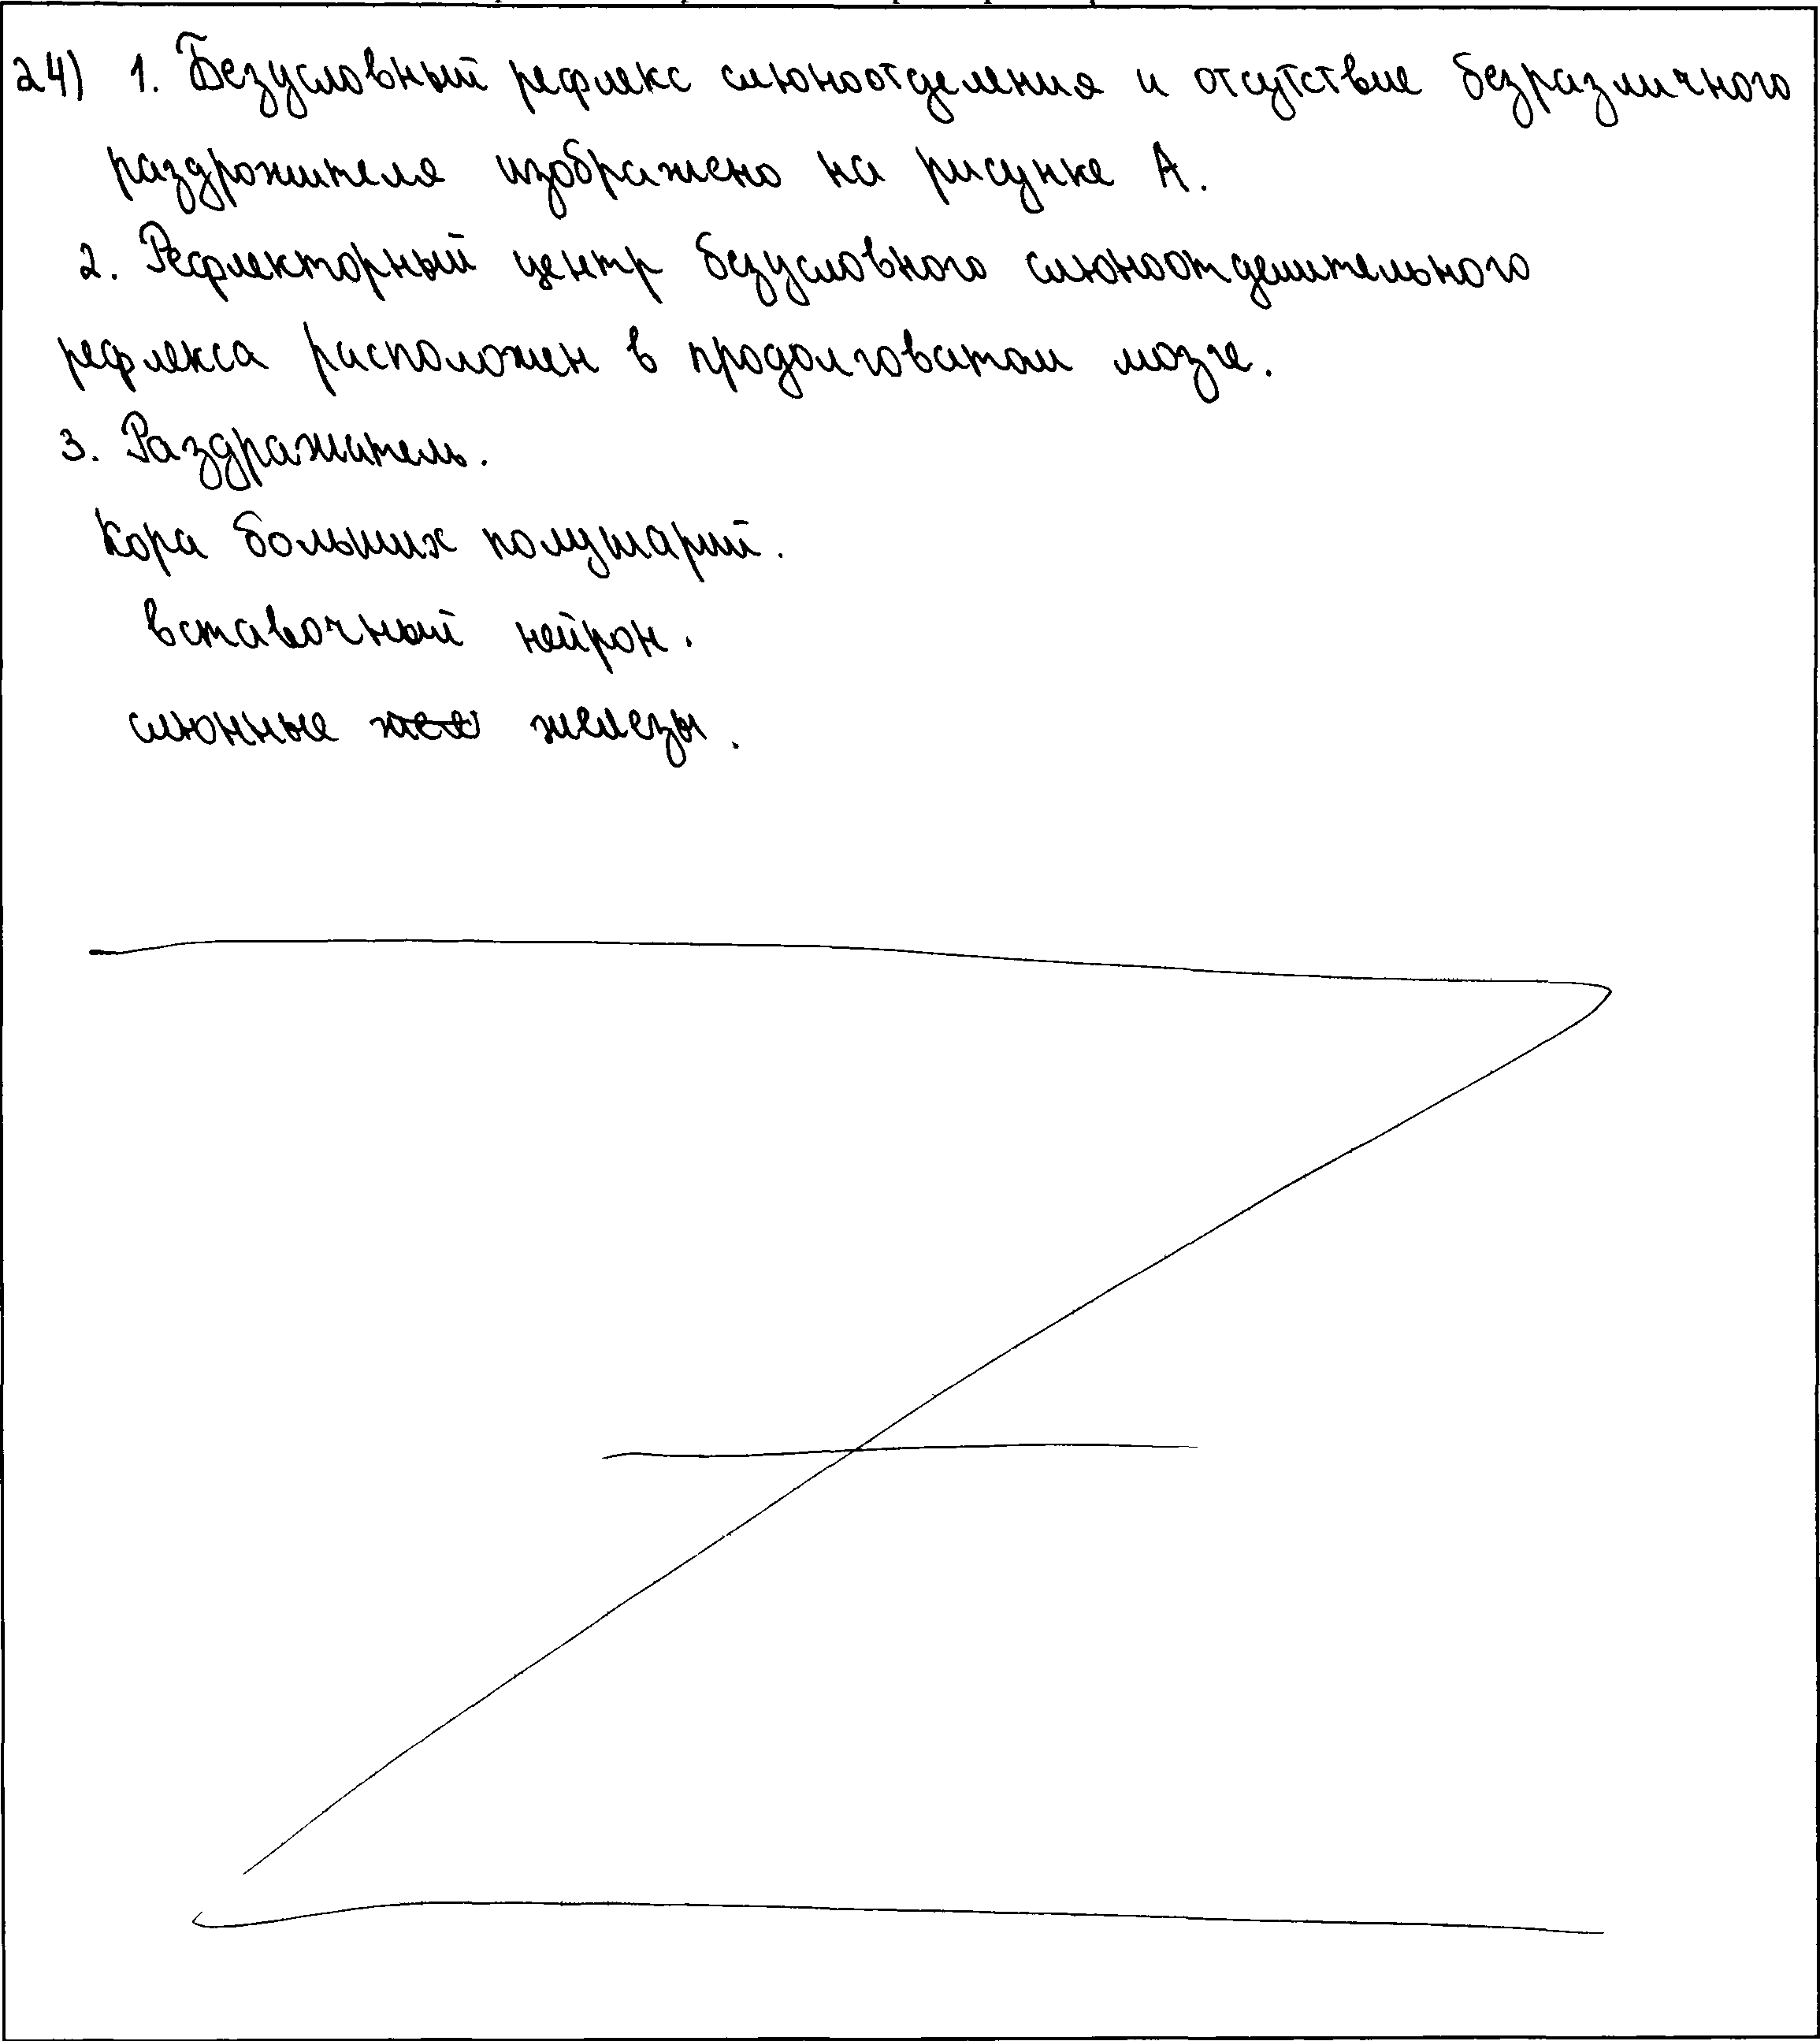 24) 1. Безусловный рефлекс слюноотделения и отсутствие безразличного
раздрожителя изображено на рисунке А.
2. Рефлекторный центр безусловного слюноотделительного
рефлекса расположен в продолговатом мозге.
3. Раздражитель.
Кора больших полушарий.
вставочный нейрон.
слюнные железы.